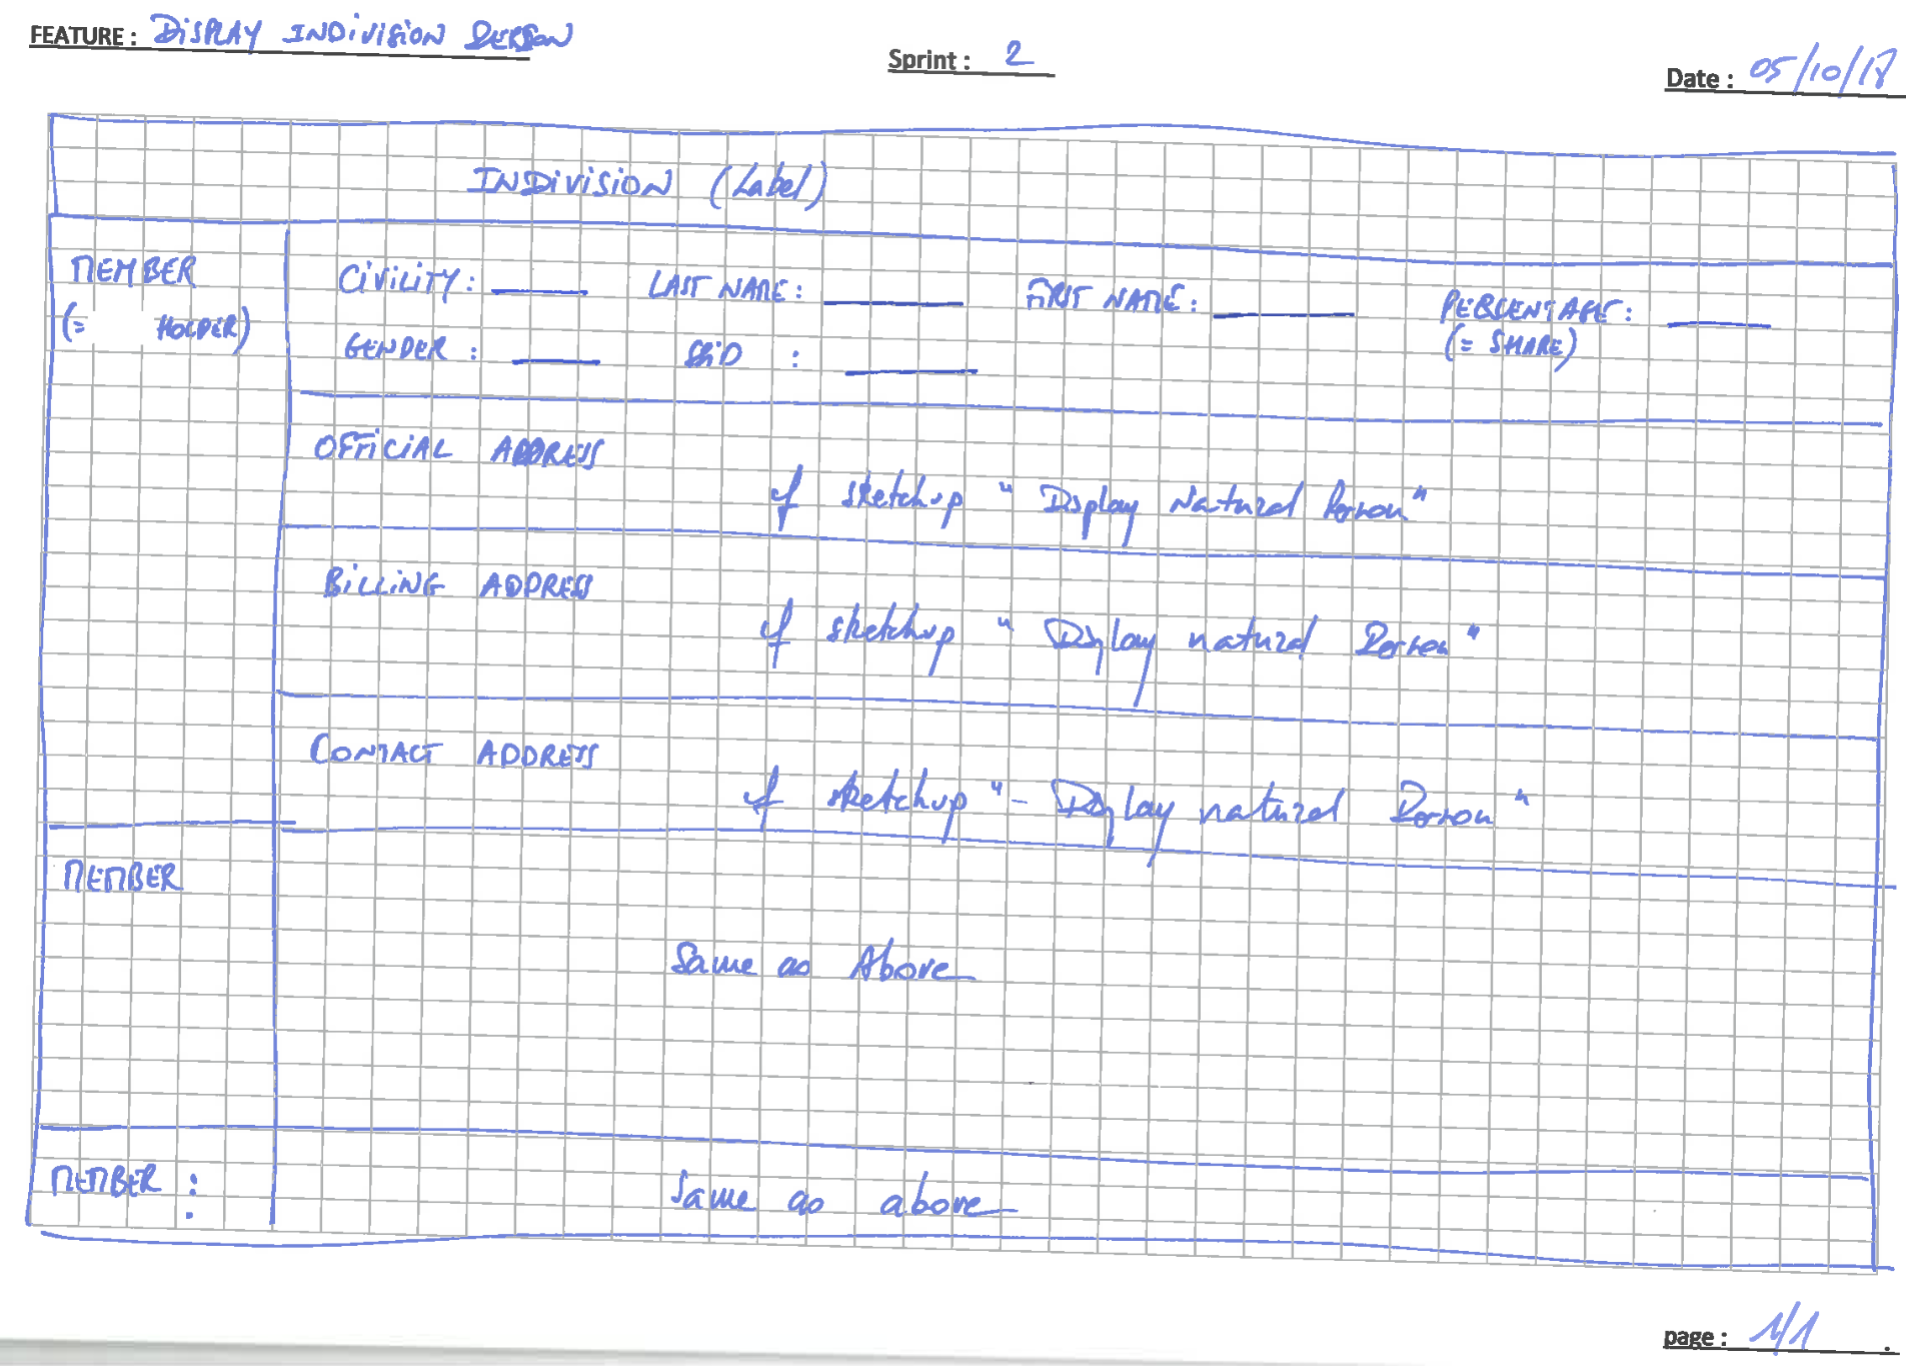 FEATURE : DiSPLAY INDiViSiON PERSON
Sprint : 2
Date : 05/10/18
INDiViSiON (Label)
MEMBER
(= HOLDER)
CiViLiTY : LAST NAME : FiRST NAME : PERCENTAGE :
(= SHARE)
GENDER : SSiD :
OFFiCiAL ADDRESS
cf sketchup " Display Natural Person "
BiLLiNG ADDRESS
cf sketchup " Display natural Person "
CONTACT ADDRESS
cf sketchup " - Display natural Person "
MEMBER
Same as Above
MEMBER :
Same as above
page : 1/1